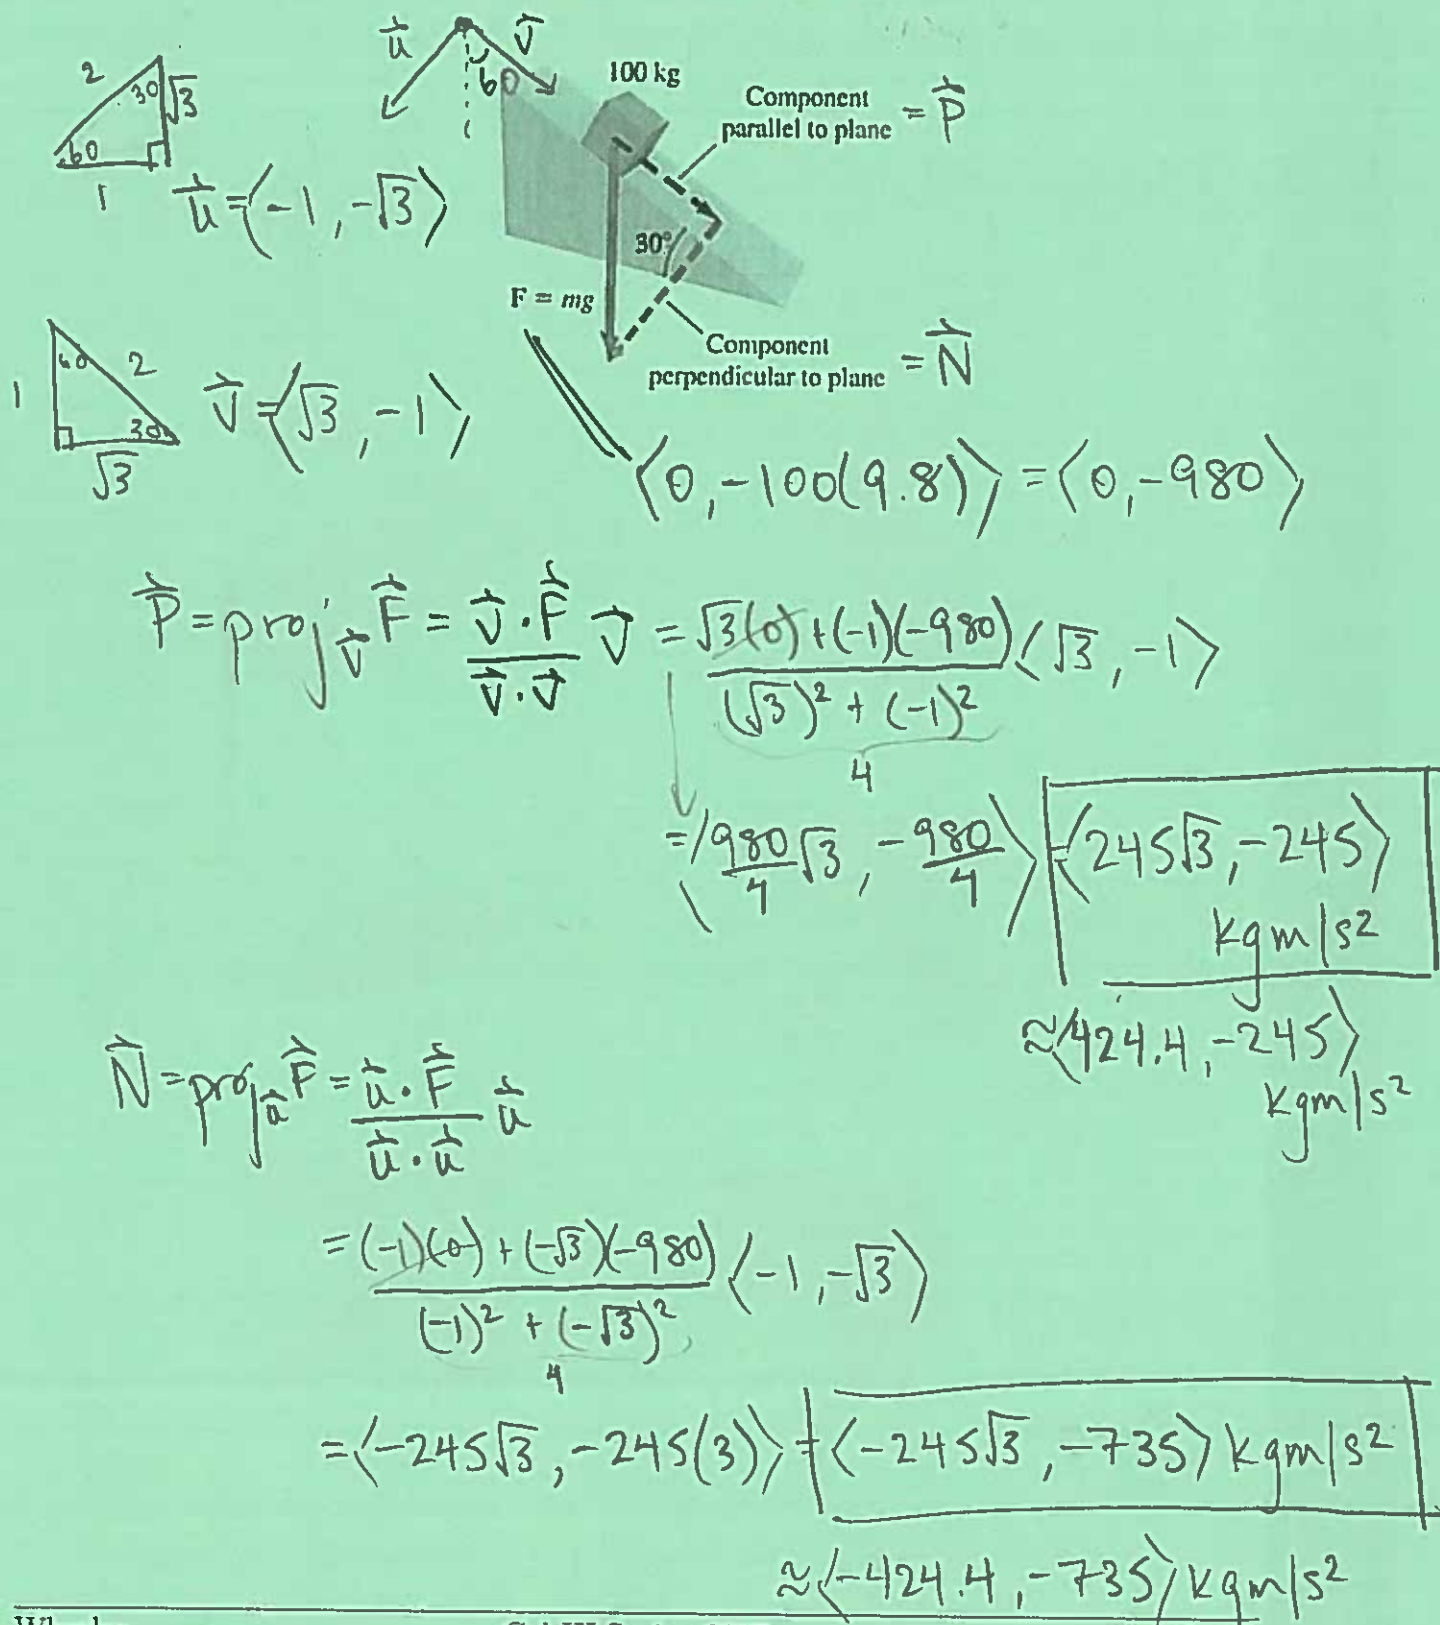 2 30 √3 60 1
u⃗ v⃗ 60
100 kg
Component
parallel to plane = P⃗
u⃗ = ⟨-1, -√3⟩
30°
F = mg
Component
perpendicular to plane = N⃗
1 60 2 30 √3
v⃗ = ⟨√3, -1⟩
⟨0, -100(9.8)⟩ = ⟨0, -980⟩
P⃗ = proj_v⃗ F⃗ = (v⃗ · F⃗)/(v⃗ · v⃗) v⃗ = (√3(0) + (-1)(-980))/((√3)² + (-1)²) ⟨√3, -1⟩
4
= ⟨980/4 √3, -980/4⟩ = ⟨245√3, -245⟩
kgm/s²
≈ ⟨424.4, -245⟩
kgm/s²
N⃗ = proj_u⃗ F⃗ = (u⃗ · F⃗)/(u⃗ · u⃗) u⃗
= ((-1)(0) + (-√3)(-980))/((-1)² + (-√3)²) ⟨-1, -√3⟩
4
= ⟨-245√3, -245(3)⟩ = ⟨-245√3, -735⟩ kgm/s²
≈ ⟨-424.4, -735⟩ kgm/s²